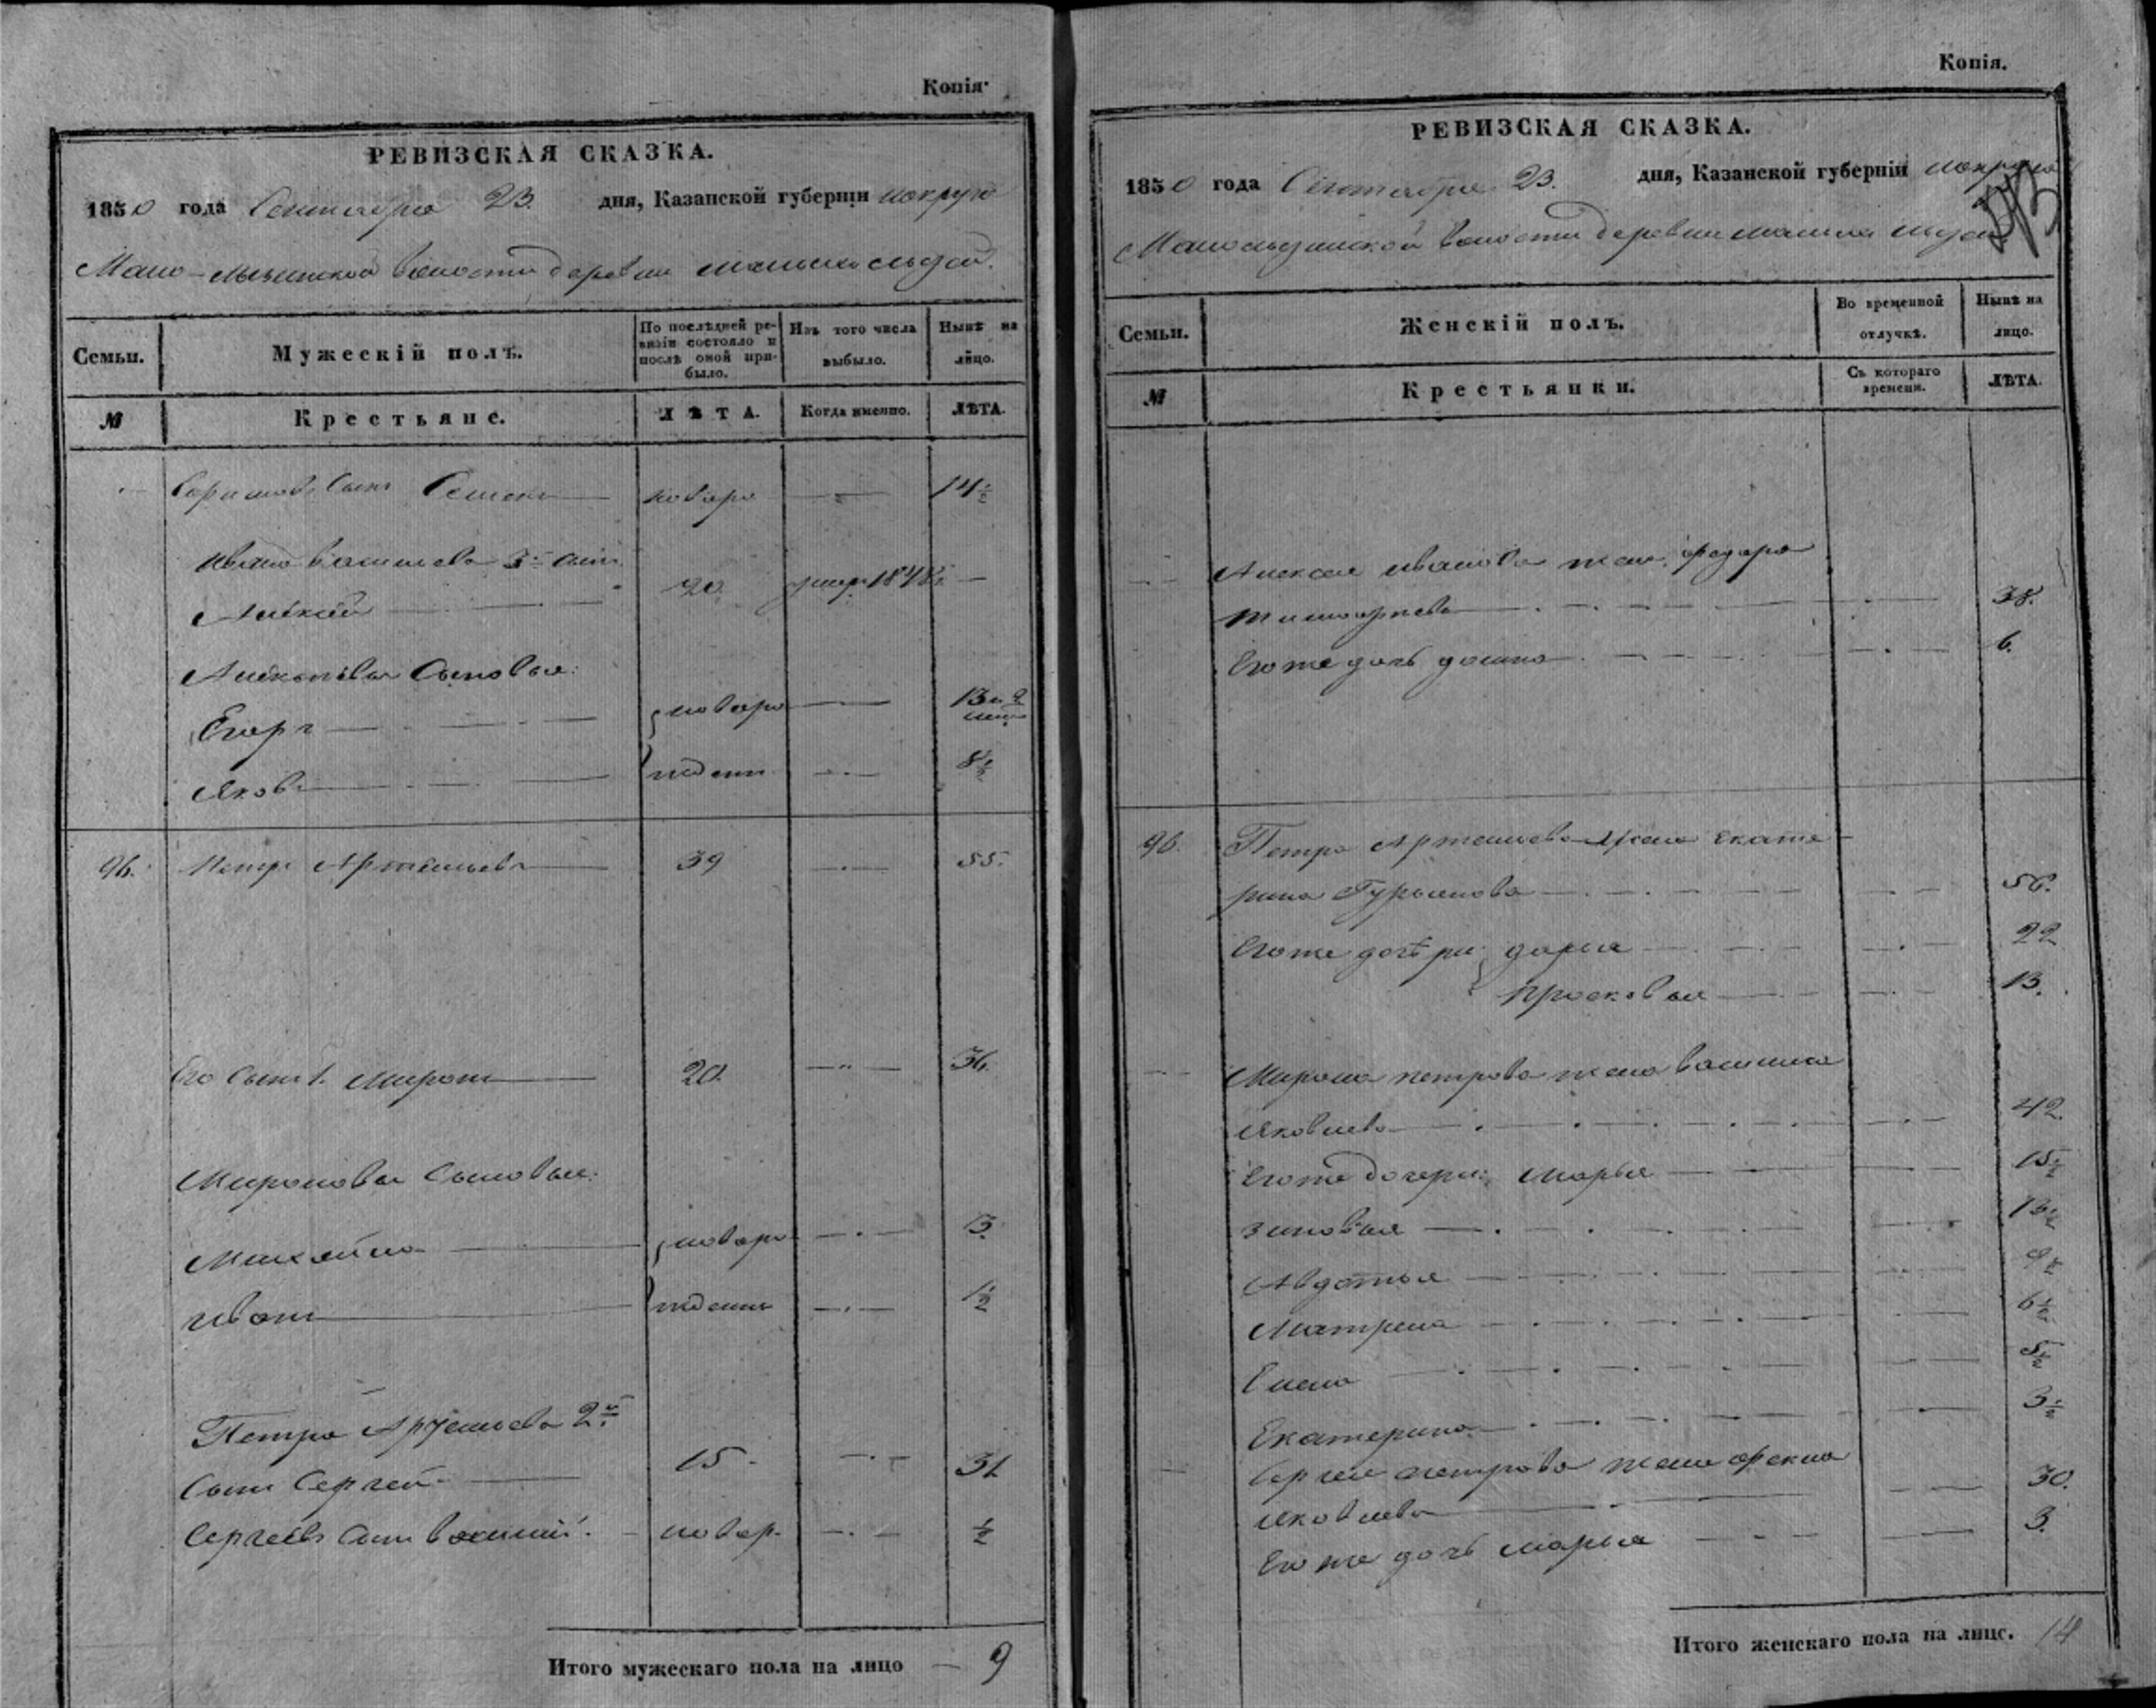 Копія.
РЕВИЗСКАЯ СКАЗКА.
1850 года Сентября 23. дня, Казанской губерніи
волости деревни
Семьи.
Мужескій полъ.
По послѣдней ревизіи состояло и послѣ оной прибыло.
Изъ того числа выбыло.
Нынѣ на лицо.
№
Крестьяне.
ЛѢТА.
Когда именно.
ЛѢТА.
сынъ Семенъ 14½
Ивана Васильева 3й сынъ
Алексѣй 20 умер. 1848
Алексѣевы сыновья:
Егоръ 13
Яковъ 8½
96. Петръ Артемьевъ 39 55.
Его сынъ 1. Миронъ 20 36
Мироновы сыновья:
Михайло 3
Иванъ 1½
Петра Артемьева 2й
сынъ Сергей 15 31
Сергеевъ сынъ Василий ½
Итого мужескаго пола на лицо 9
Копія.
РЕВИЗСКАЯ СКАЗКА.
1850 года Сентября 23. дня, Казанской губерніи
волости деревни
Семьи.
Женскій полъ.
Во временной отлучкѣ.
Нынѣ на лицо.
№
Крестьянки.
Съ котораго времени.
ЛѢТА.
Алексея Иванова жена Федора
Тимофеева 38.
Его же дочь 6.
96. Петра Артемьева жена Екате
рина Гурьянова 56.
Его же дочери: Дарья 22
Просковья 13.
Мирона Петрова жена Василиса
Яковлева 42
Его же дочери: Марья 15½
Зиновья 13½
Авдотья 9½
Матрена 6½
Елена 5½
Екатерина 3½
Сергея Петрова жена Фекла
Яковлева 30.
Его же дочь Марья 3.
Итого женскаго пола на лицо. 14